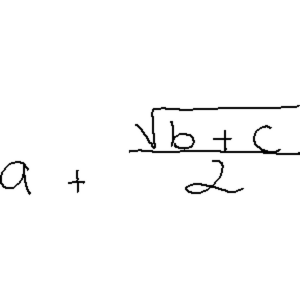 a + \frac{\sqrt{b + c}}{2}